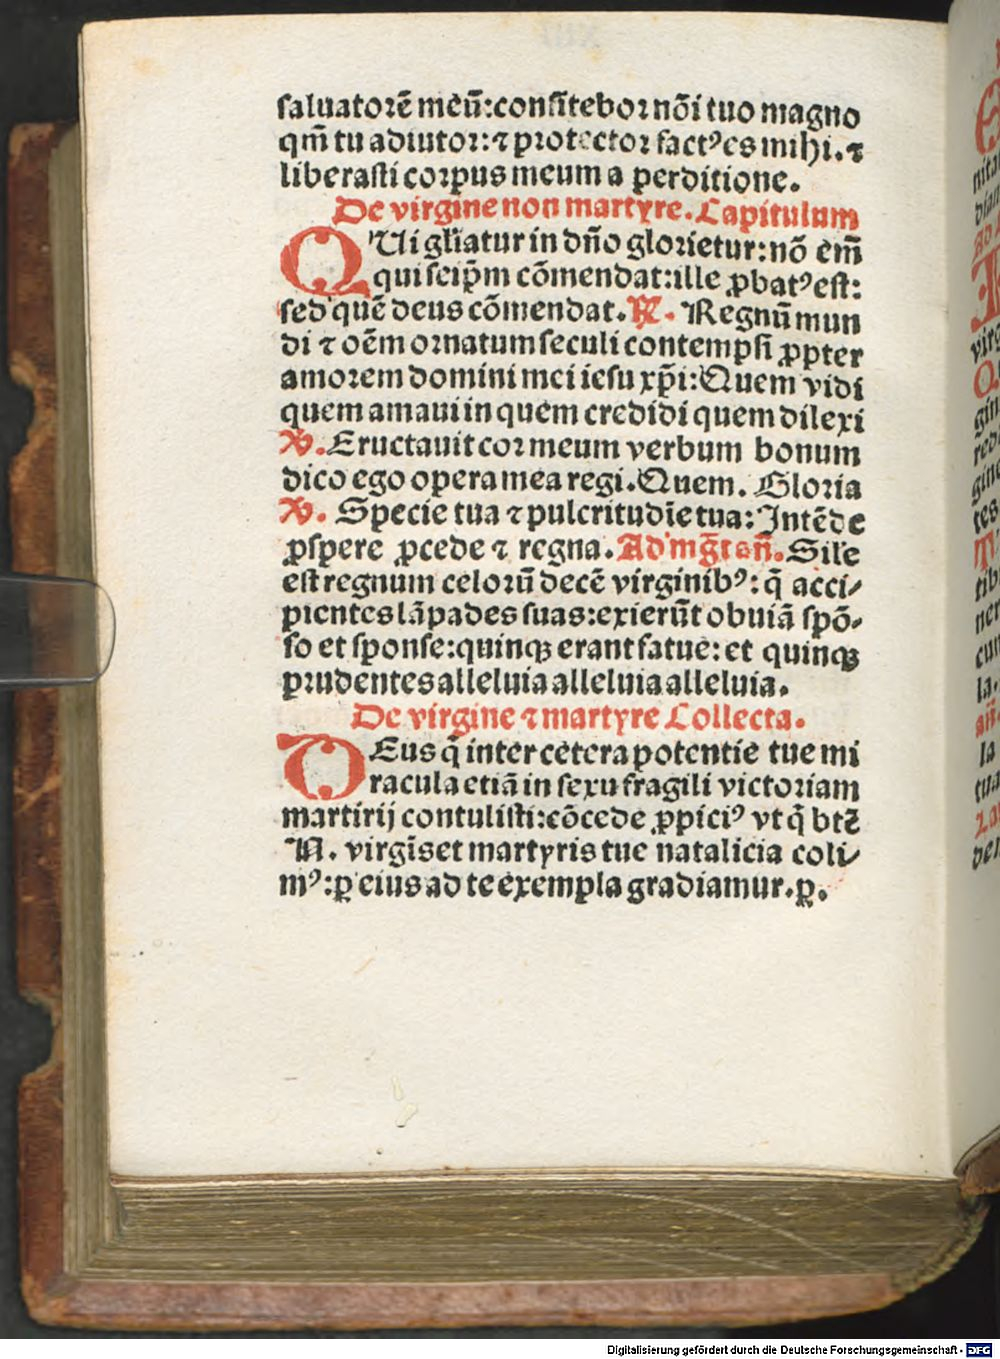 saluatorē meū: confitebor nōi tuo magno
qm̄ tu adiutor: ⁊ protector fact⁹ es mihi. ⁊
liberasti corpus meum a perditione.
De virgine non martyre. Capitulum
QUi gl̄iatur in dn̄o glorietur: nō em̄
qui seip̄m cōmendat: ille ꝓbat⁹ est:
sed quē deus cōmendat. ℟. Regnū mun
di ⁊ oēm ornatum seculi contempsi ꝓpter
amorem domini mei iesu xp̄i: Quem vidi
quem amaui in quem credidi quem dilexi
℣. Eructauit cor meum verbum bonum
dico ego opera mea regi. Quem. Gloria
℣. Specie tua ⁊ pulcritudīe tua: Intēde
ꝓspere ꝓcede ⁊ regna. Ad mḡt an̄. Sil'e
est regnum celorū decē virginib⁹: q̄ acci/
pientes lāpades suas: exierūt obuiā spō/
so et sponse: quinqꝫ erant fatue: et quinqꝫ
prudentes alleluia alleluia alleluia.
De virgine ⁊ martyre Collecta.
DEus q̄ inter cetera potentie tue mi
racula etiā in sexu fragili victoriam
martirij contulisti: cōcede ꝓpici⁹ vt q̄ btē
N. virgīs et martyris tue natalicia coli/
m⁹: ꝑ eius ad te exempla gradiamur. ꝑ.
Digitalisierung gefördert durch die Deutsche Forschungsgemeinschaft - DFG